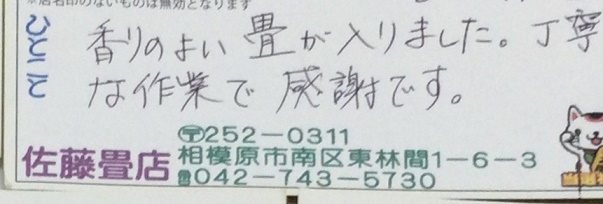 ※店名印のないものは無効となります
ひとこと
香りのよい畳が入りました。丁寧
な作業で感謝です。
佐藤畳店
〒252-0311
相模原市南区東林間1-6-3
☎042-743-5730